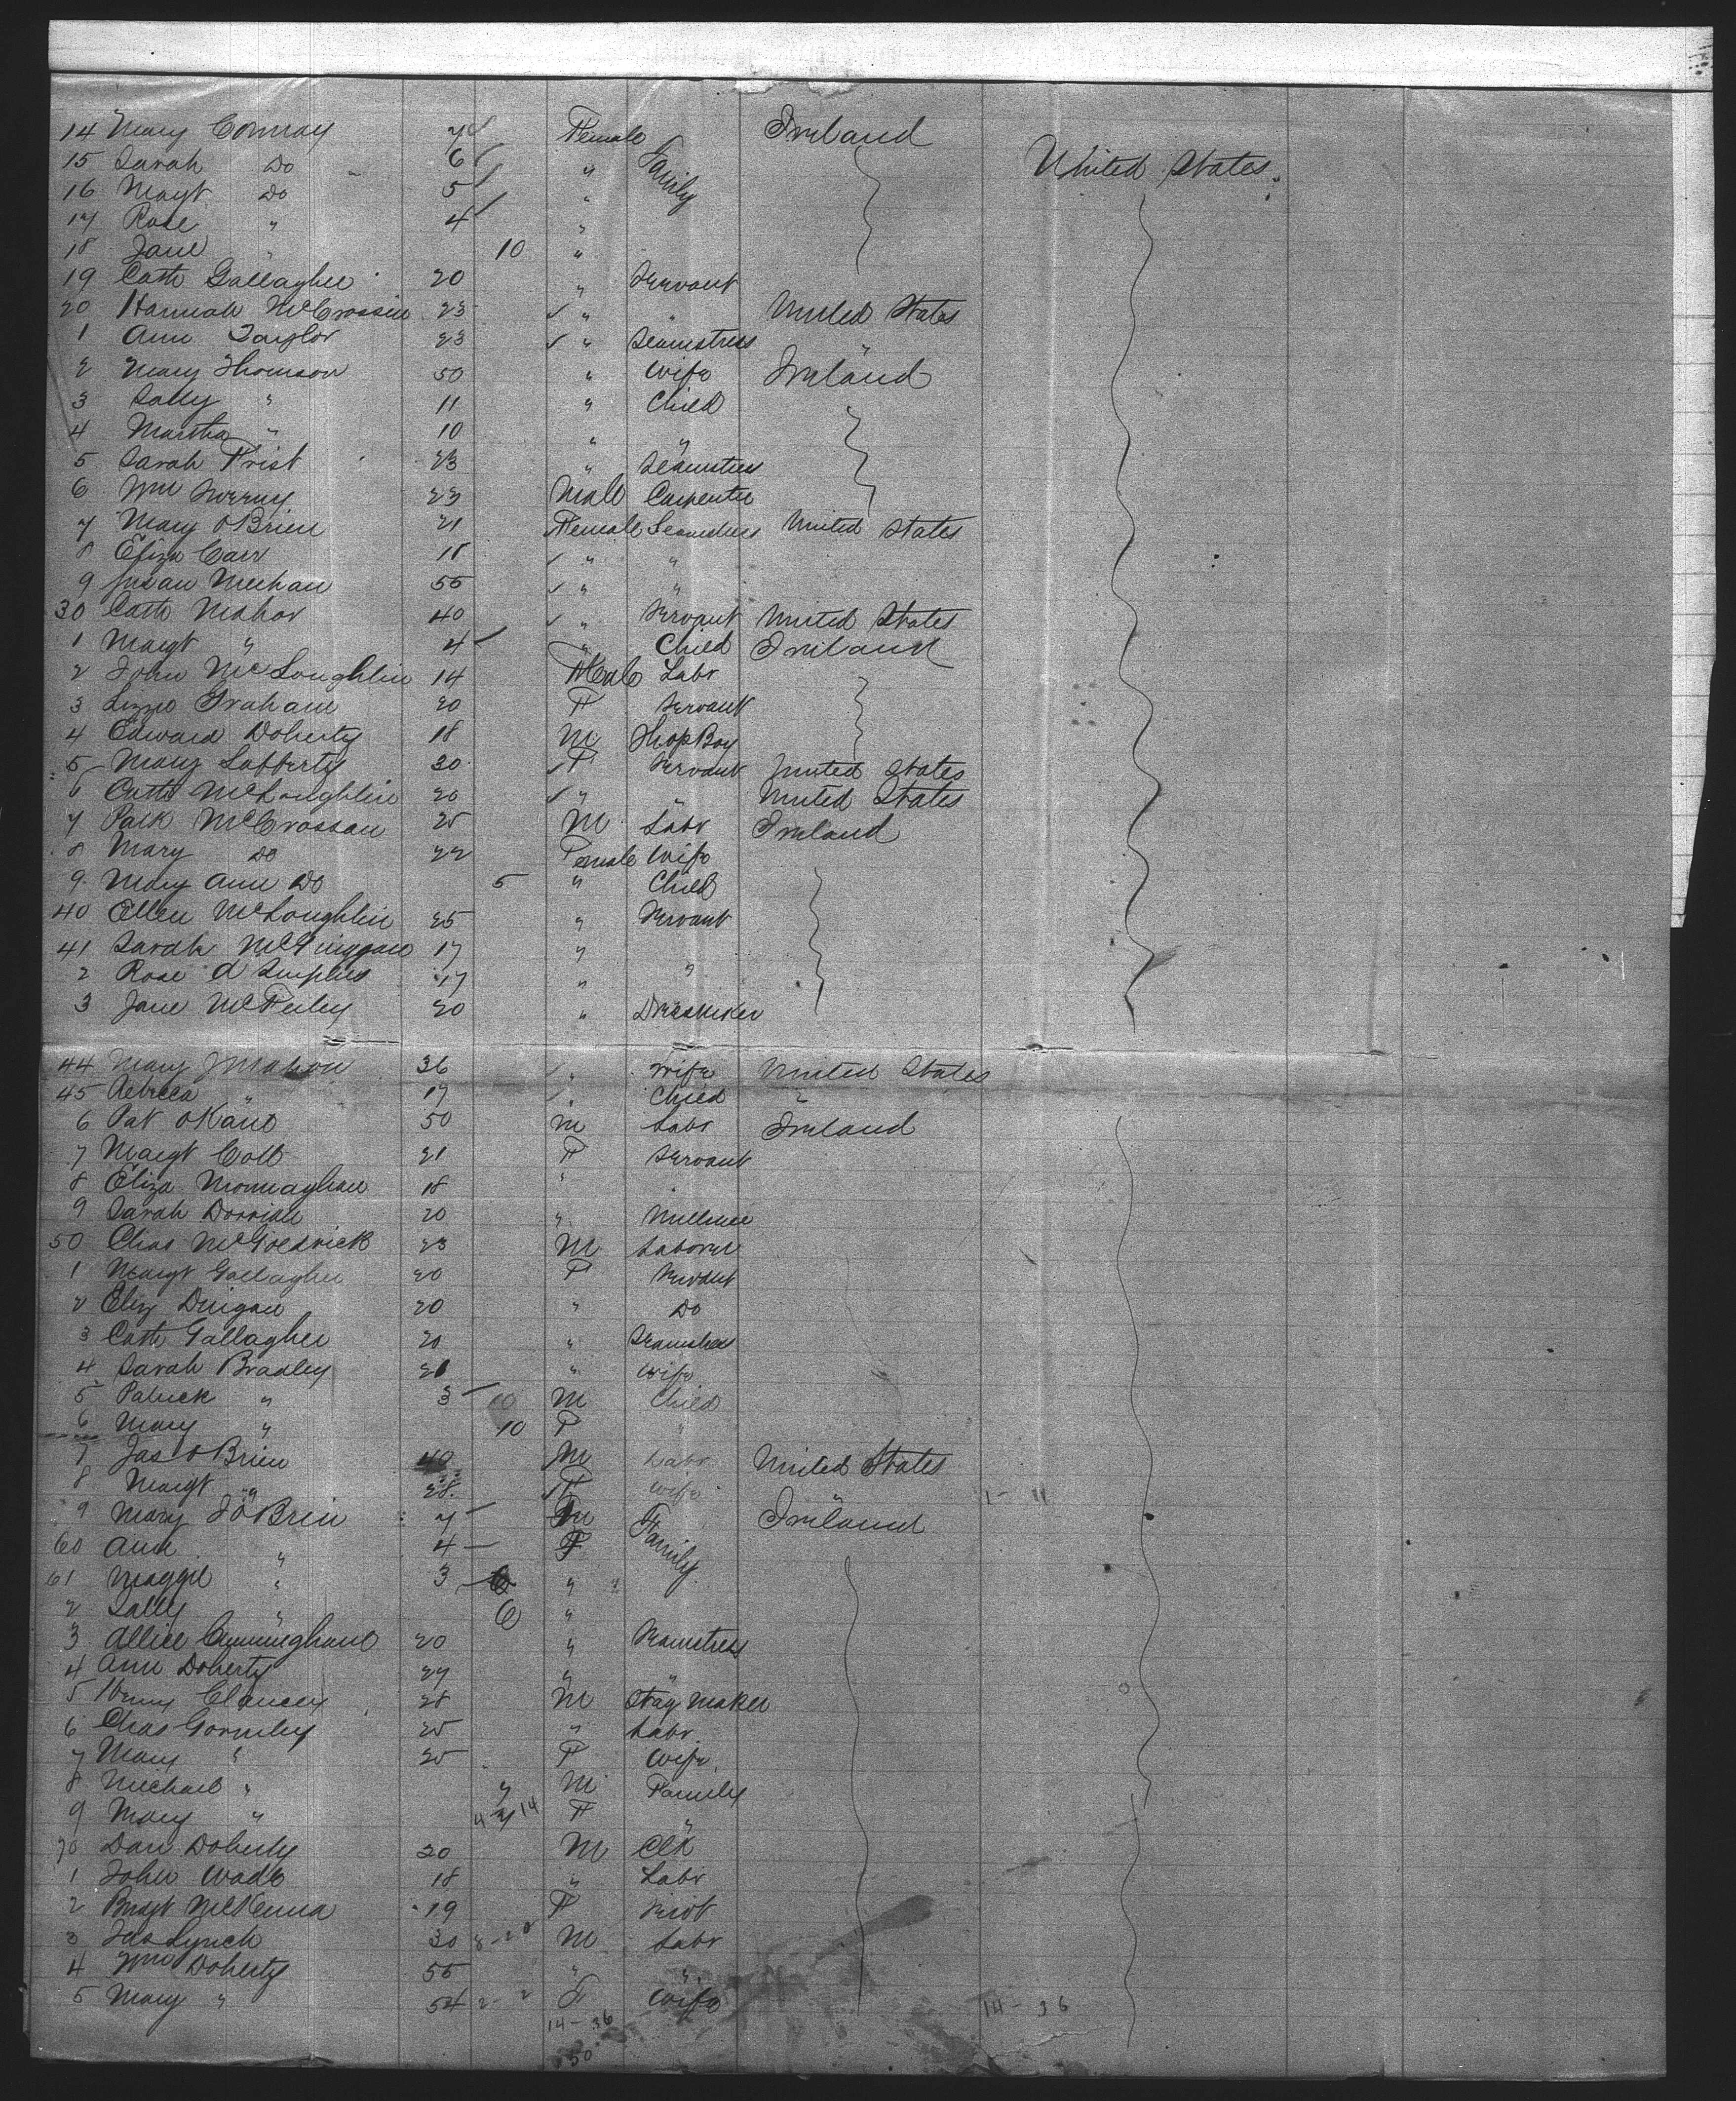 14 Mary Conway 7 Female Ireland
15 Sarah Do 6 " Family United States
16 Magt Do 5 "
17 Rose " 4 "
18 Jane " 10 "
19 Cath Gallagher 20 " Servant
20 Hannah McCrossin 23 " " United States
1 Ann Taylor 23 " Seamstress "
2 Mary Thomson 50 " Wife Ireland
3 Sally " 11 " Child
4 Martha " 10 " "
5 Sarah Frist 23 " Seamstress
6 Wm Sweeny 23 Male Carpenter
7 Mary OBrien 21 Female Seamstress United States
8 Eliza Carr 18 " "
9 Susan Meehan 55 " "
30 Cath Mahor 40 " Servant United States
1 Margt " 4 " Child Ireland
2 John McLoughlin 14 Male Labr
3 Lizzie Graham 20 F Servant
4 Edward Doherty 18 M Shop Boy
5 Mary Lafferty 30 F Servant United States
6 Cath McLoughlin 20 " " United States
7 Patk McCrossan 25 M Labr Ireland
8 Mary Do 22 Female Wife
9 Mary Ann Do 5 " Child
40 Ellen McLoughlin 25 " Servant
41 Sarah 17 "
2 Rose 17 " "
3 Jane McFeeley 20 "
44 Mary J Mahon 36 " Wife United States
45 Rebecca " 17 " Child "
6 Pat OKane 50 M Labr Ireland
7 Margt Coll 21 F Servant
8 Eliza Monnaghan 18 "
9 Sarah Dorrian 20 " Milliner
50 Chas McGoldrick 23 M Laborer
1 Margt Gallagher 20 F Servant
2 Eliz 20 " Do
3 Cath Gallagher 20 " Seamstress
4 Sarah Bradley 26 " Wife
5 Patrick " 3 10 M Child
6 Mary " 10 F "
7 Jas OBrien 40 M Labr United States
8 Margt " 28 F Wife 1 - 11
9 Mary J OBrien 7 Ireland
60 Ann " 4 F Family
61 Maggie " 3 "
2 Sally " 6 "
3 Allice Cunningham 20 " Seamstress
4 Ann Doherty 27 " "
5 Henry Clancey 28 M Stay Maker
6 Chas Gormley 25 " Labr
7 Mary " 25 F Wife
8 Michael " 7 M Family
9 Mary " 4 14 F "
70 Dan Doherty 20 M Clk
1 John Wade 18 " Labr
2 Bridgt McKenna 19 F
3 Jas Lynch 30 M Labr
4 Wm Doherty 55 " "
5 Mary " 54 2 - 2 F Wife 14 - 36
14 - 36
50